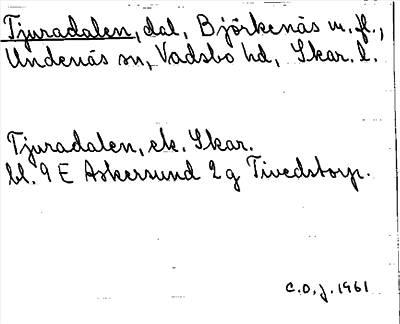 Tjuradalen, dal, Björkenäs m. fl.,
Undenäs sn, Vadsbo hd, Skar. l.
Tjuradalen, ek. Skar.
bl. 9 E Askersund 2 g Tivedstorp.
C.O.J. 1961